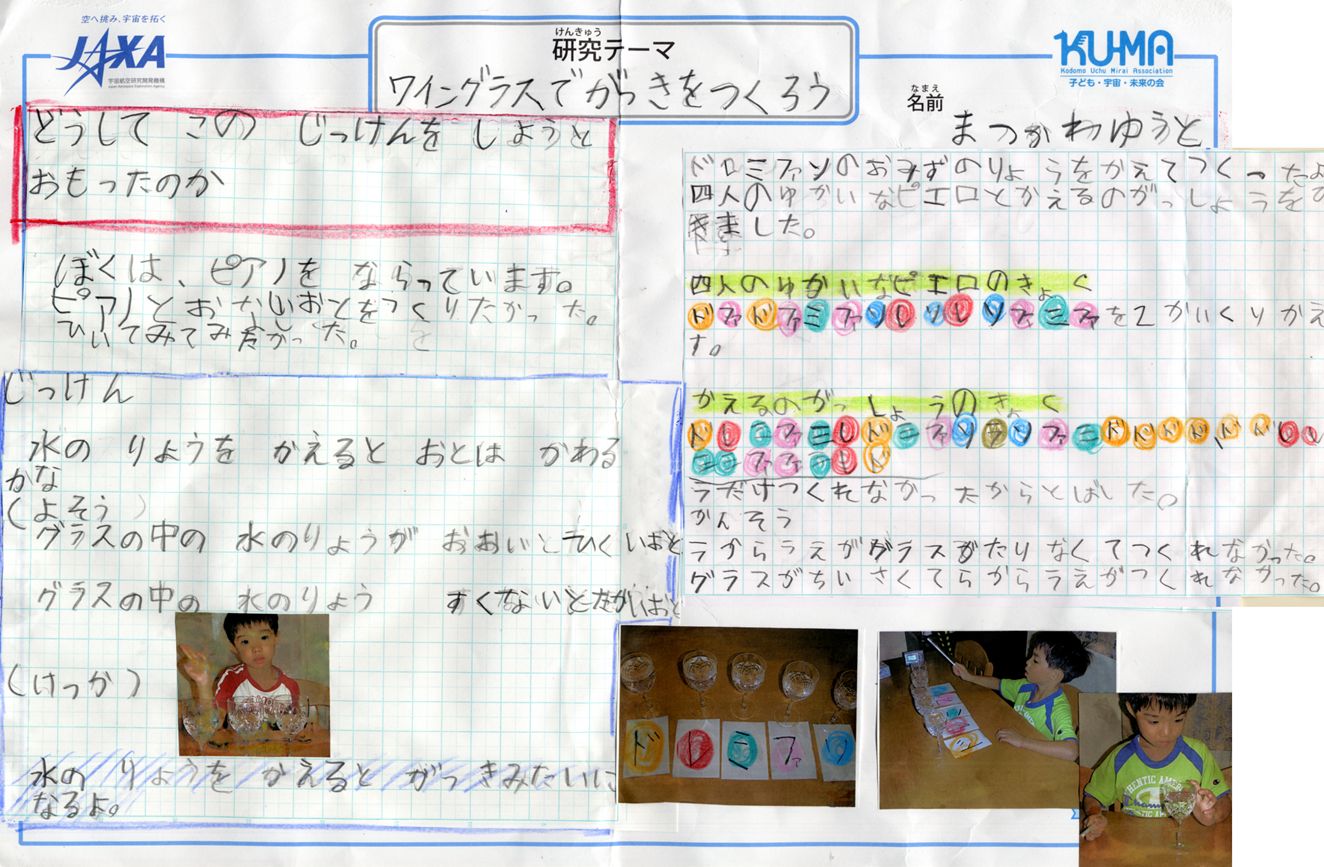 空へ挑み、宇宙を拓く
JAXA
宇宙航空研究開発機構
Japan Aerospace Exploration Agency
けんきゅう
研究テーマ
ワイングラスでがっきをつくろう
KU-MA
Kodomo Uchu Mirai Association
子ども・宇宙・未来の会
なまえ
名前
まつかわゆうと
どうして この じっけんを しようと
おもったのか
ぼくは、ピアノを ならっています。
ピアノとおなじおとをつくりたかった。
ひいてみてみたかった。
じっけん
水の りょうを かえると おとは かわる
かな
(よそう)
グラスの中の 水のりょうが おおいと ひくいおと
グラスの中の 水のりょう すくないとたかいおと
(けっか)
水の りょうを かえると がっきみたいに
なるよ。
ドロミファソのおみずのりょうをかえてつくったよ
四人のゆかいなピエロとかえるのがっしょうを
きました。
四人のゆかいなピエロのきょく
ドファドファミファソレソレソファミファを2かいくりかえ
す。
かえるのがっしょうのきょく
ドレミファミレドミファソラソファミドドドドドドレレ
ミミファファミレド
ラだけつくれなかったからとばした。
かんそう
ラからうえがグラスがたりなくてつくれなかった。
グラスがちいさくてらからうえがつくれなかった。
ド レ ミ ファ ソ
THENTIC AMER
Champion